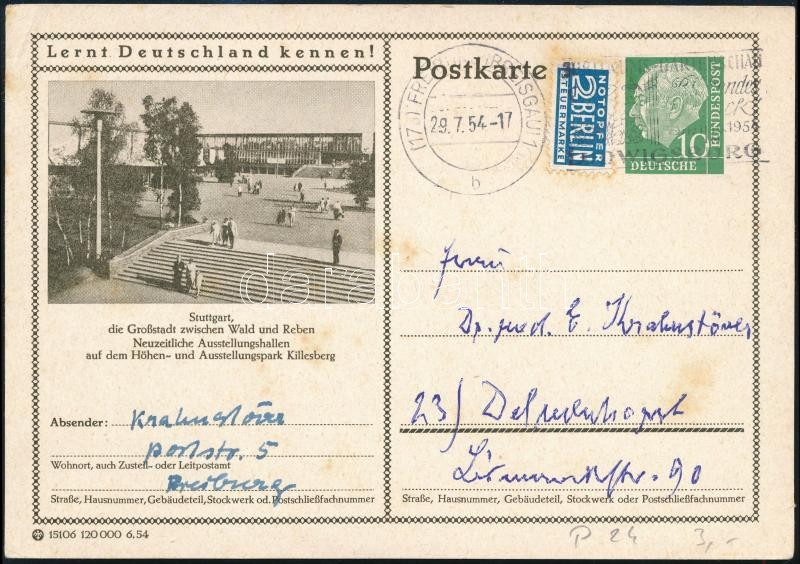 Lernt Deutschland kennen!
Stuttgart,
die Großstadt zwischen Wald und Reben
Neuzeitliche Ausstellungshallen
auf dem Höhen- und Ausstellungspark Killesberg
Absender: Krahnstöver
Poststr. 5
Wohnort, auch Zustell- oder Leitpostamt
Freiburg
Straße, Hausnummer, Gebäudeteil, Stockwerk od. Postschließfachnummer
15106 120 000 6.54
Postkarte
29.7.54-17
b
NOTOPFER
2 BERLIN
STEUERMARKE
10
DEUTSCHE
BUNDESPOST
Herrn
Dr. med. E. Krahnstöver
23) Delmenhorst
Bismarckstr. 90
Straße, Hausnummer, Gebäudeteil, Stockwerk oder Postschließfachnummer
P 24 3,-
darabanth